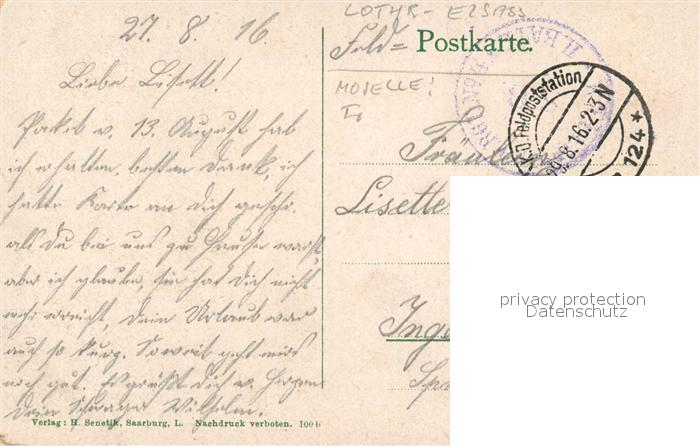 27. 8. 16.
Liebe Lisett!
Paket v. 13. August hab
ich erhalten, besten Dank, ich
hatte Karte an dich geschr.
als du bei uns zu Hause warst
aber ich glaube, sie hat dich nicht
mehr erreicht, dein Urlaub war
auch so kurz. Soweit geht mirs
noch gut. Es grüßt dich v. Herzen
dein Schwager Wilhelm.
Verlag: H. Senetik, Saarburg, L. Nachdruck verboten. 100 b
LOTHR- ELSASS
Feld= Postkarte.
MOSELLE!
K.D. Feldpoststation
29.8.16.2-3N
124 *
Fräulein
Lisette
privacy protection
Datenschutz
Inge